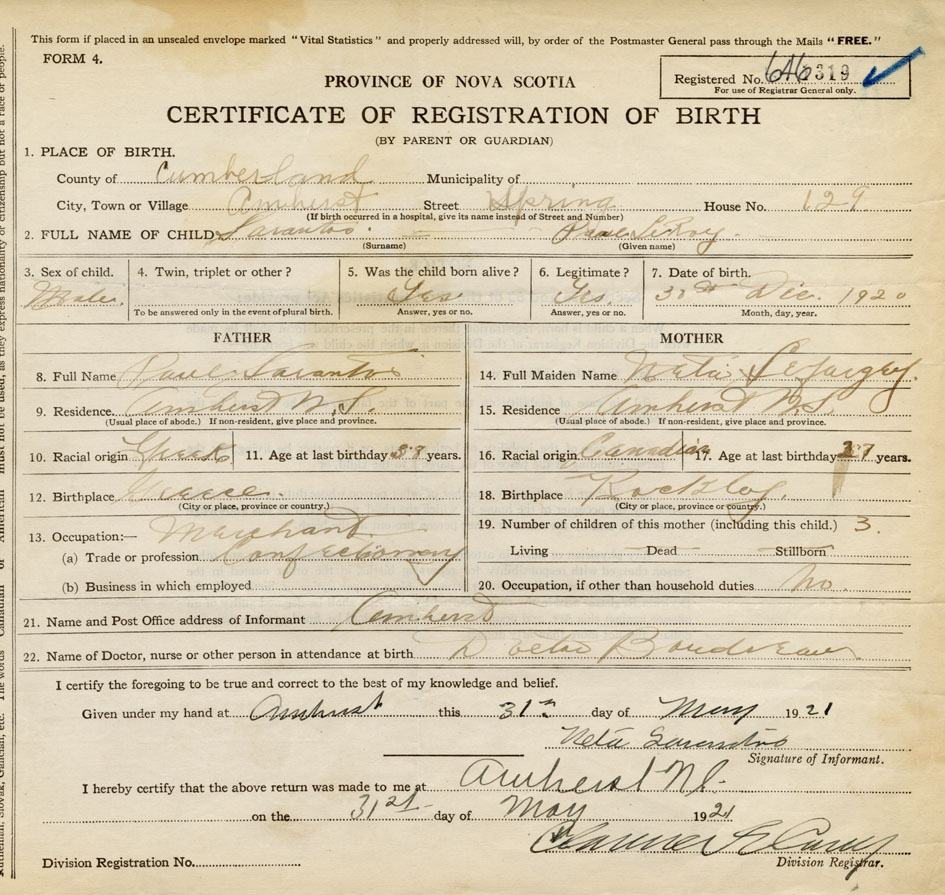 This form if placed in an unsealed envelope marked "Vital Statistics" and properly addressed will, by order of the Postmaster General pass through the Mails "FREE."
FORM 4.
Registered No. 319
For use of Registrar General only.
PROVINCE OF NOVA SCOTIA
CERTIFICATE OF REGISTRATION OF BIRTH
(BY PARENT OR GUARDIAN)
1. PLACE OF BIRTH.
County of Cumberland Municipality of
City, Town or Village Amherst Street Spring House No. 129
(If birth occurred in a hospital, give its name instead of Street and Number)
2. FULL NAME OF CHILD Sarantos Paul LeRoy
(Surname) (Given name)
3. Sex of child. 4. Twin, triplet or other? 5. Was the child born alive? 6. Legitimate? 7. Date of birth.
Male. Yes Yes. Dec. 1920
To be answered only in the event of plural birth. Answer, yes or no. Answer, yes or no. Month, day, year.
FATHER MOTHER
8. Full Name Paul Sarantos 14. Full Maiden Name Neta
9. Residence Amherst N.S. 15. Residence Amherst N.S.
(Usual place of abode.) If non-resident, give place and province. (Usual place of abode.) If non-resident, give place and province.
10. Racial origin Greek 11. Age at last birthday years. 16. Racial origin Canadian 17. Age at last birthday years.
12. Birthplace Greece. 18. Birthplace Rockley
(City or place, province or country.) (City or place, province or country.)
13. Occupation:— Merchant 19. Number of children of this mother (including this child.) 3.
(a) Trade or profession Confectionary Living Dead Stillborn
(b) Business in which employed 20. Occupation, if other than household duties No.
21. Name and Post Office address of Informant Amherst
22. Name of Doctor, nurse or other person in attendance at birth Doctor Boudreau
I certify the foregoing to be true and correct to the best of my knowledge and belief.
Given under my hand at Amherst this 31st day of May 1921
Neta Sarantos
Signature of Informant.
I hereby certify that the above return was made to me at Amherst NS.
on the 31st day of May 1921
Division Registration No. Division Registrar.